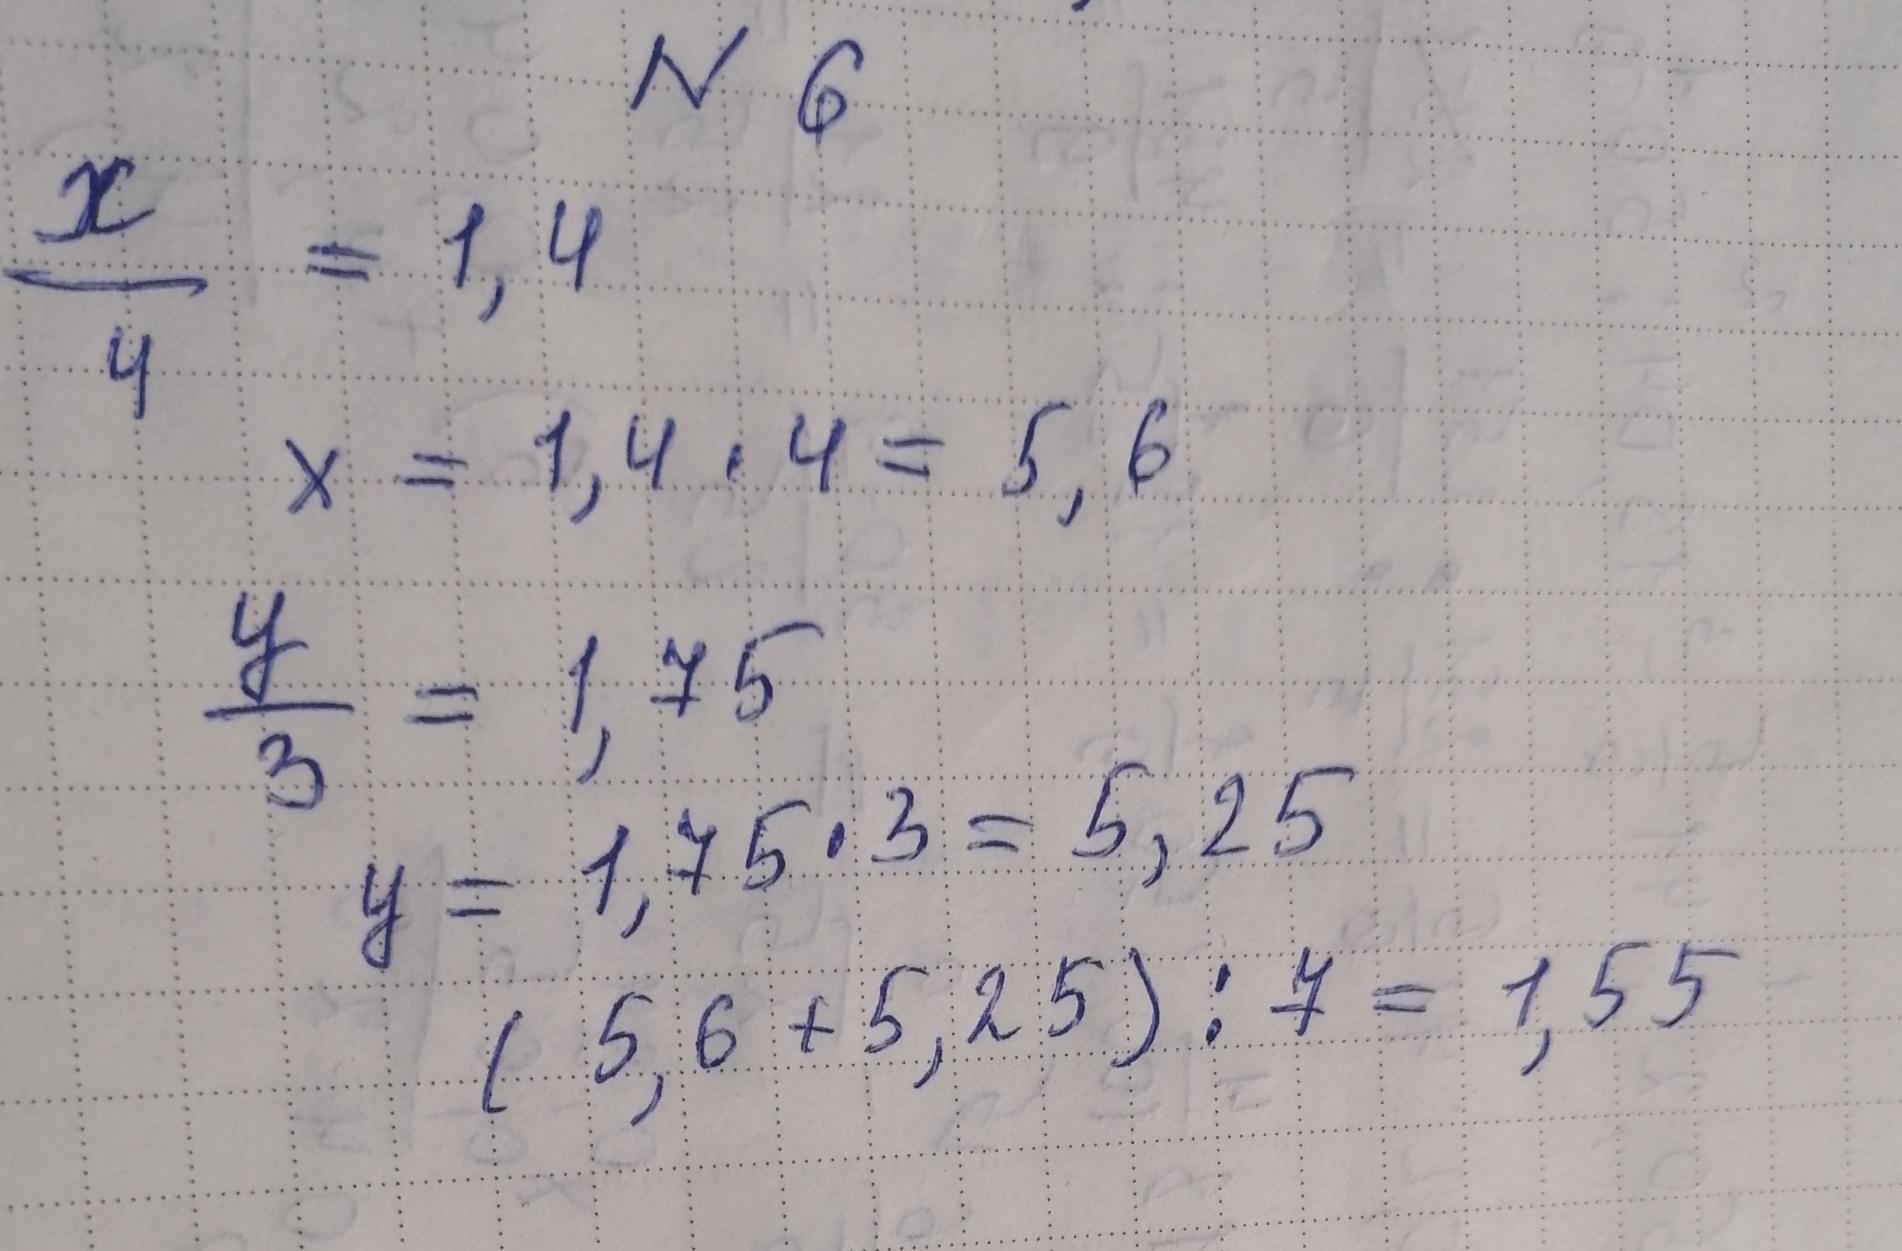 N 6
x/4 = 1,4
x = 1,4 · 4 = 5,6
y/3 = 1,75
y = 1,75 · 3 = 5,25
( 5,6 + 5,25 ) : 7 = 1,55